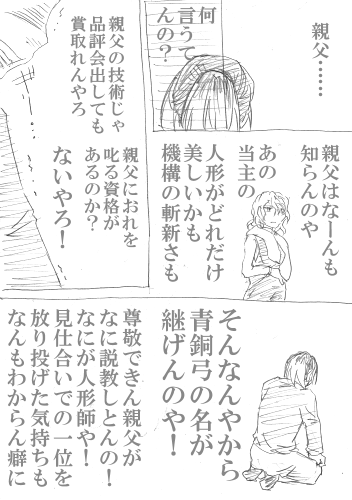 親父……
何
言うて
んの？
親父の技術じゃ
品評会出しても
賞取れんやろ
親父はなーんも
知らんのや
あの
当主の
人形がどれだけ
美しいかも
機構の斬新さも
親父におれを
叱る資格が
あるのか？
ないやろ！
そんなんやから
青銅弓の名が
継げんのや！
尊敬できん親父が
なに説教しとんの！
なにが人形師や！
見仕合いでの一位を
放り投げた気持ちも
なんもわからん癖に